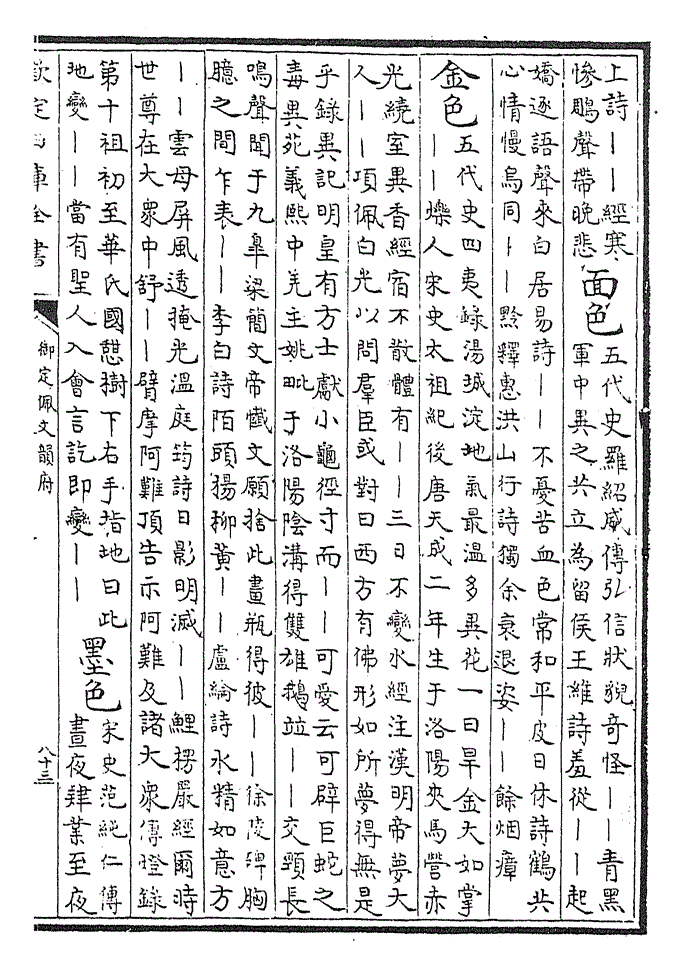 上詩丨丨經寒
慘鵰聲帶晚悲
面色
五代史羅紹威傳弘信狀貌奇怪丨丨青黑
軍中異之共立為留侯王維詩羞從丨丨起
嬌逐語聲來白居易詩丨丨不憂苦血色常和平皮日休詩鶴共
心情慢烏同丨丨黔釋惠洪山行詩獨余衰退姿丨丨餘烟瘴
金色
五代史四夷錄湯城淀地氣最溫多異花一曰旱金大如掌
丨丨爍人宋史太祖紀後唐天成二年生于洛陽夾馬營赤
光繞室異香經宿不散體有丨丨三日不變水經注漢明帝夢大
人丨丨項佩白光以問羣臣或對曰西方有佛形如所夢得無是
乎錄異記明皇有方士獻小龜徑寸而丨丨可愛云可辟巨蛇之
毒異苑義熙中羌主姚毗于洛陽陰溝得雙雄鵝竝丨丨交頸長
鳴聲聞于九臯梁簡文帝懺文願捨此畫瓶得彼丨丨徐陵碑胸
臆之間乍表丨丨李白詩陌頭楊柳黃丨丨盧綸詩水精如意方
丨丨雲母屏風透掩光溫庭筠詩日影明滅丨丨鯉楞嚴經爾時
世尊在大衆中舒丨丨臂摩阿難頂告示阿難及諸大衆傳燈錄
第十祖初至華氏國憇樹下右手指地曰此
地變丨丨當有聖人入會言訖即變丨丨
墨色
宋史范純仁傳
晝夜肄業至夜
欽定四庫全書
御定佩文韻府
八十三